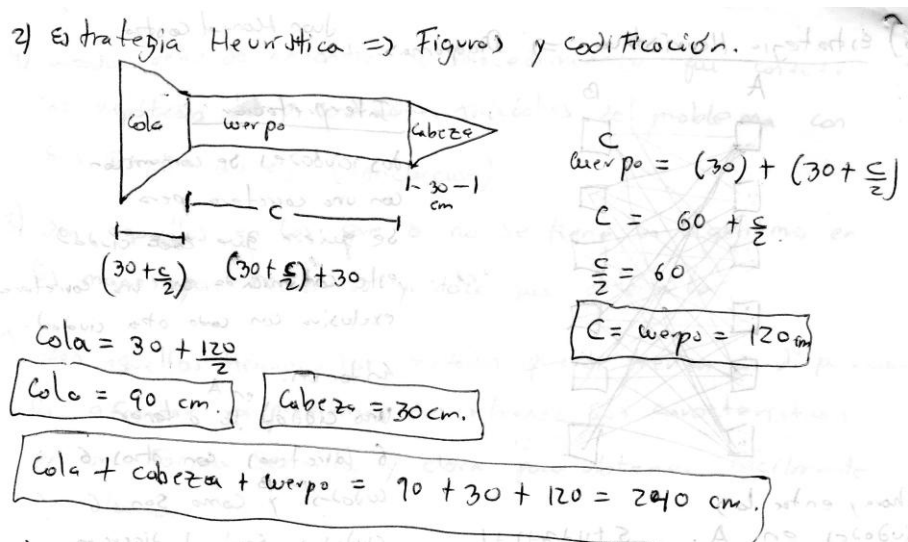 2) Estrategia Heurística => Figuras y codificación.
Cola cuerpo Cabeza
|- 30 -|
cm
|--- C ---|
(30+c/2) (30+c/2)+30
C
Cuerpo = (30) + (30+c/2)
C = 60 + c/2
c/2 = 60
C = cuerpo = 120 cm
Cola = 30 + 120/2
Cola = 90 cm. Cabeza = 30 cm.
Cola + cabeza + cuerpo = 90 + 30 + 120 = 240 cm.